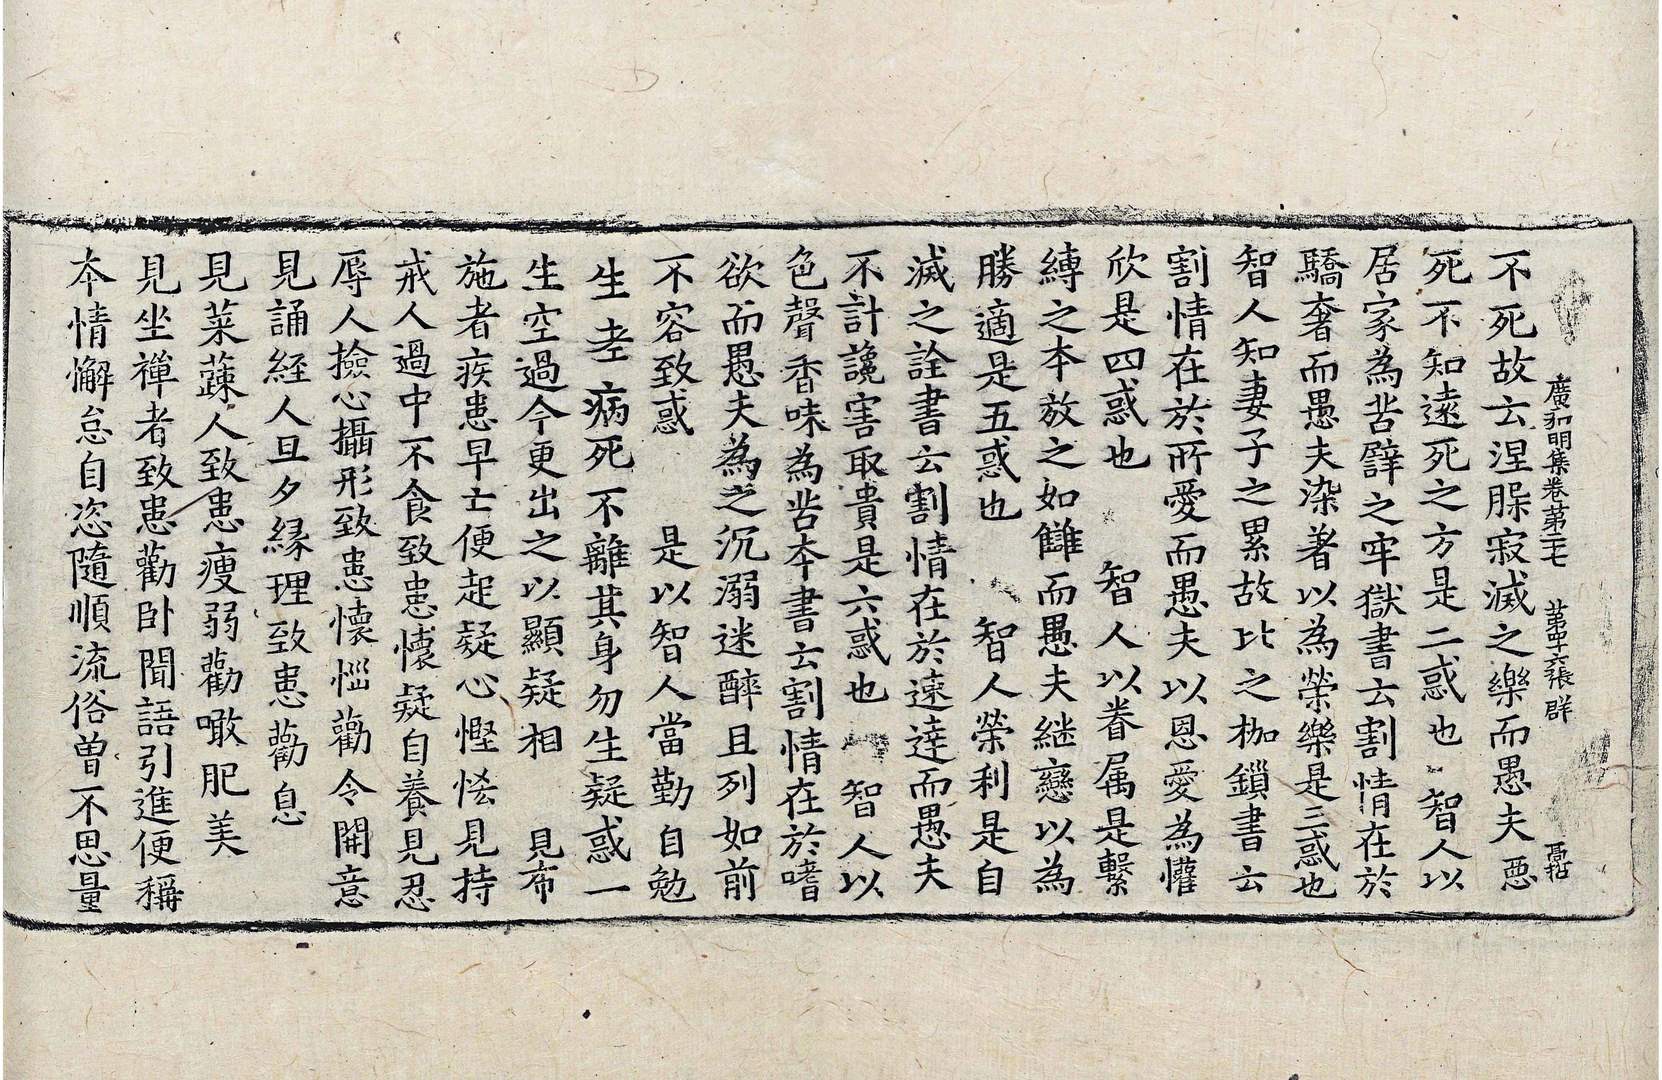 廣弘明集卷第二十七　第四十六張　群
不死故云涅槃寂滅之樂而愚夫惡
死不知遠死之方是二惑也　智人以
居家為苦譬之牢獄書云割情在於
驕奢而愚夫染著以為榮樂是三惑也
智人知妻子之累故比之枷鎖書云
割情在於所愛而愚夫以恩愛為懽
欣是四惑也　智人以眷属是繫
縛之本放之如讎而愚夫継戀以為
勝適是五惑也　智人榮利是自
滅之詮書云割情在於速達而愚夫
不計讒害取貴是六惑也　智人以
色聲香味為苦本書云割情在於嗜
欲而愚夫為之沉溺迷醉且列如前
不容致惑　是以智人當勤自勉
生老病死不離其身勿生疑惑一
生空過今更出之以顯疑相　見布
施者疾患早亡便起疑心慳悋見持
戒人過中不食致患懷疑自養見忍
辱人撿心攝形致患懷惱勸令開意
見誦経人旦夕緣理致患勸息
見菜蔬人致患瘦弱勸噉肥美
見坐禪者致患勸卧聞語引進便稱
本情懈怠自恣隨順流俗曾不思量